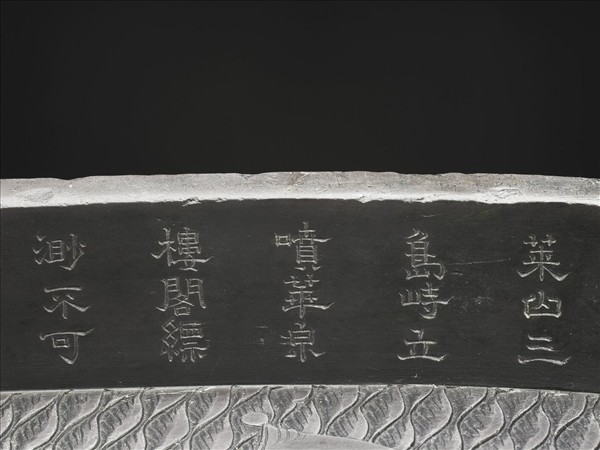 萊山三
島峙立
噴華泉
樓閣縹
渺不可